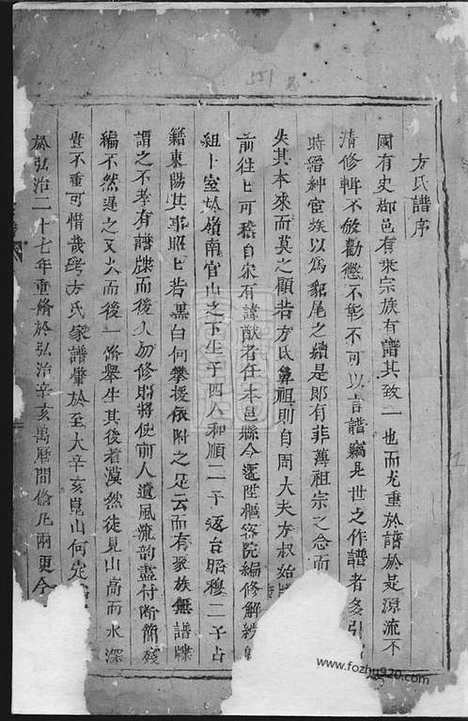 方氏譜序
國有史郡邑有乘宗族有譜其致一也而尤重於譜於是源流不
清修輯不敬勸懲不彰不可以言譜竊見世之作譜者多引
時爵紳宦族以為貂尾之續是則有非薄祖宗之念而
失其本來而莫之顧若方氏鼻祖則自周大夫方叔始
前往往可稽自宋有諱猷者任本邑縣令遷陞樞密院編修解
組卜室於嶺南官山之下生子四人和順二子返台昭穆二子占
籍東陽其事昭昭若黑白何攀援依附之足云而有家族無譜牒
謂之不孝有譜牒而後人勿修則將使前人遺風流韵盡付斷簡殘
編不然遲之又久而後一修舉生其後者漠然徒見山高而水深
豈不重可惜哉 方氏家譜肇於至大辛亥崑山何
於弘治二十七年重脩於弘治辛亥萬曆間脩凡兩更今
551
www.fozhu920.com